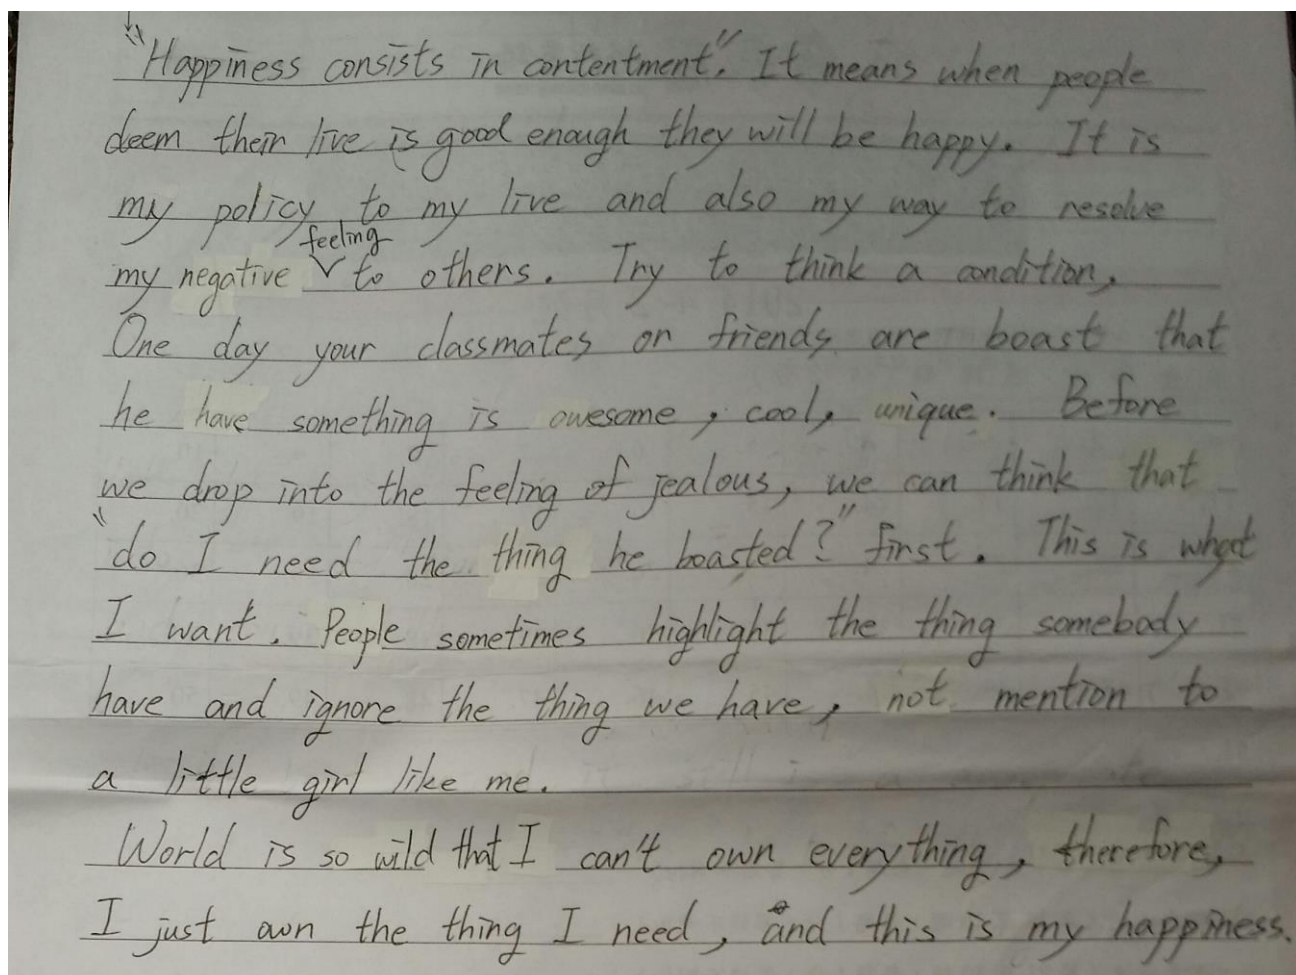 "Happiness consists in contentment". It means when people
deem their live is good enough they will be happy. It is
my policy to my live and also my way to resolve
my negative feeling to others. Try to think a condition,
One day your classmates or friends are boast that
he have something is awesome, cool, unique. Before
we drop into the feeling of jealous, we can think that
"do I need the thing he boasted?" first. This is what
I want. People sometimes highlight the thing somebody
have and ignore the thing we have, not mention to
a little girl like me.
World is so wild that I can't own everything, therefore,
I just own the thing I need, and this is my happiness.